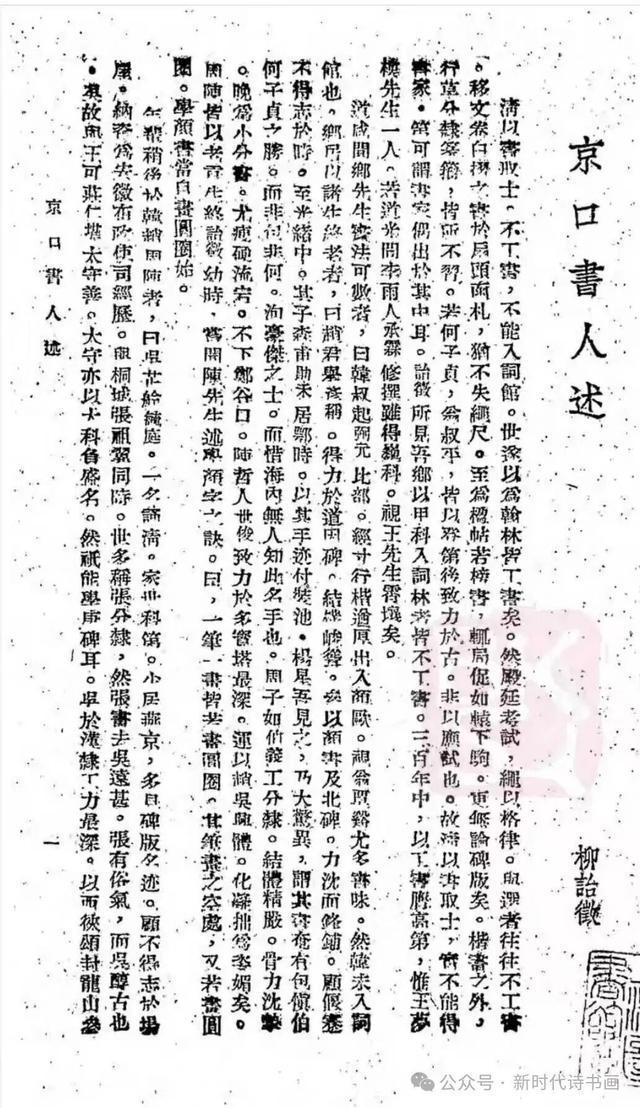 京口書人述
柳詒徵
清以書取士。不工書,不能入詞館。世遂以為翰林皆工書矣。然殿廷考試,繩以格律。與選者往往不工書
。移文卷白摺之書於扇頭面札,猶不失繩尺。至為楹帖若榜書,輒局促如轅下駒。更無論碑版矣。楷書之外,
行草分隸篆籀,皆所不習。若何子貞,翁叔平,皆以登第後致力於古。非以應試也。故清以書取士,實不能得
書家。第可謂書家偶出於其中耳。詒徵所見吾鄉以甲科入詞林者皆不工書。三百年中,以工書騰高第,惟王夢
樓先生一人。若道光間李雨人承霖修撰雖得巍科。視王先生霄壤矣。
道咸間鄉先生書法可數者,曰韓叔起弼元比部。經寸行楷遒厚出入顏歐。視翁覃谿尤多書味。然韓未入詞
館也。鄉居以諸生終老者,曰趙君舉彥稱。得力於道因碑。結體峻聳。參以顏書及北碑。力沈而銘鋪。顧偃蹇
不得志於時。至光緒中。其子森甫助未居鄂時。以其手迹付裝池。楊星吾見之,乃大驚異,謂其書奄有包慎伯
何子貞之勝。而非包非何。洵豪傑之士。而惜海內無人知此名手也。周子如伯發工分隸。結體精嚴。骨力沈摯
。晚為小分書。尤瘦硬流宕。不下鄭谷口。陳哲人世俊致力於多寶塔最深。運以趙吳興體。化凝拙為姿媚矣。
周陳皆以老青生終詒徵幼時,嘗聞陳先生述學顏字之訣。曰,一筆一畫皆若畫圓圈。其筆畫之空處,又若畫圓
圈。學顏書當自畫圓圈始。
年輩稍後於韓趙周陳者,曰吳芷舲鏡庭。一名議濤。家世科第。少居燕京,多見碑版名迹。顧不得志於場
屋。納粟為安徽布政使司經歷。與桐城張祖翼同時。世多稱張分隸,然張書去吳遠甚。張有俗氣,而吳醇古也
。吳故與王可莊仁堪太守善。太守亦以大科負盛名。然祇能學唐碑耳。吳於漢隸工力最深。以西狹頌封龍山參
京口書人述
一
公众号·新时代诗书画